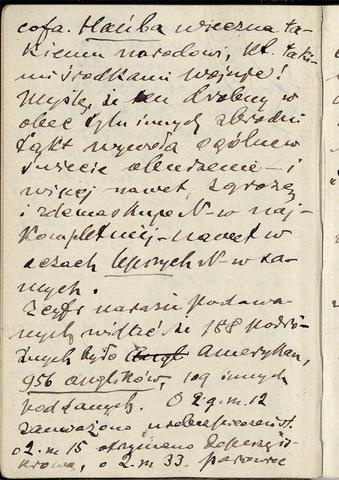 cofa. Hańba wieczna ta-
kiemu narodowi, kt. taki-
mi środkami wojuje!
Myślę, że ten drobny w
obec tylu innych zbrodni
fakt wywoła ogólne w
świecie oburzenie – i
więcej nawet, zgrozę
i zdemaskuje N-w naj-
kompletniej – nawet w
oczach lepszych N-w sa-
mych.
Z cyfr narazie podawa-
nych widzieć że 188 podró-
żnych było Amerykan,
956 anglików, 109 innych
poddanych. O 2 g. m. 12
zauważono
o 2. m 15 otrzymano
o 2. m 33. parowiec